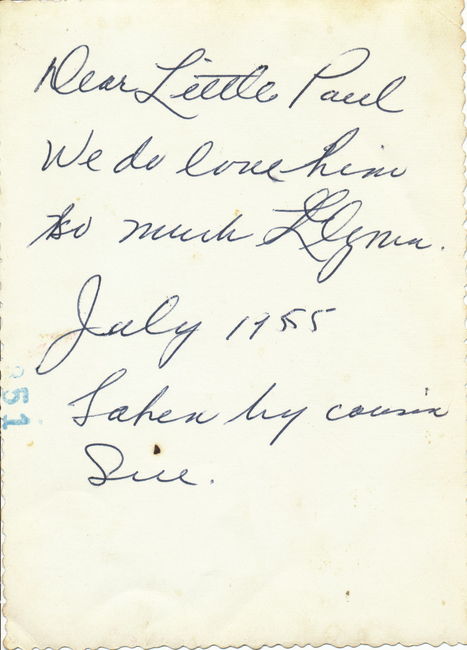 Dear Little Paul
We do love him
so much
July 1955
Taken by cousin
Sue.
351